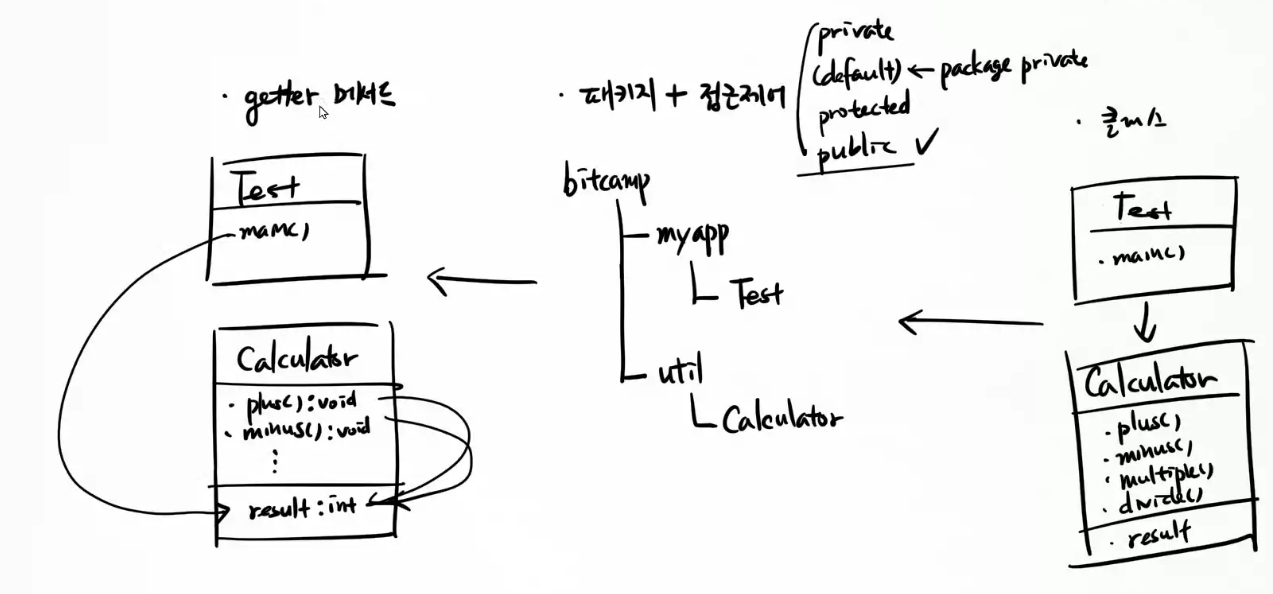 · getter 메서드
Test
· main()
Calculator
· plus(): void
· minus(): void
⋮
result: int
· 패키지 + 접근제어
private
(default) ← package private
protected
public ✓
bitcamp
myapp
Test
util
Calculator
· 클래스
Test
· main()
Calculator
· plus()
· minus()
· multiple()
· divide()
· result